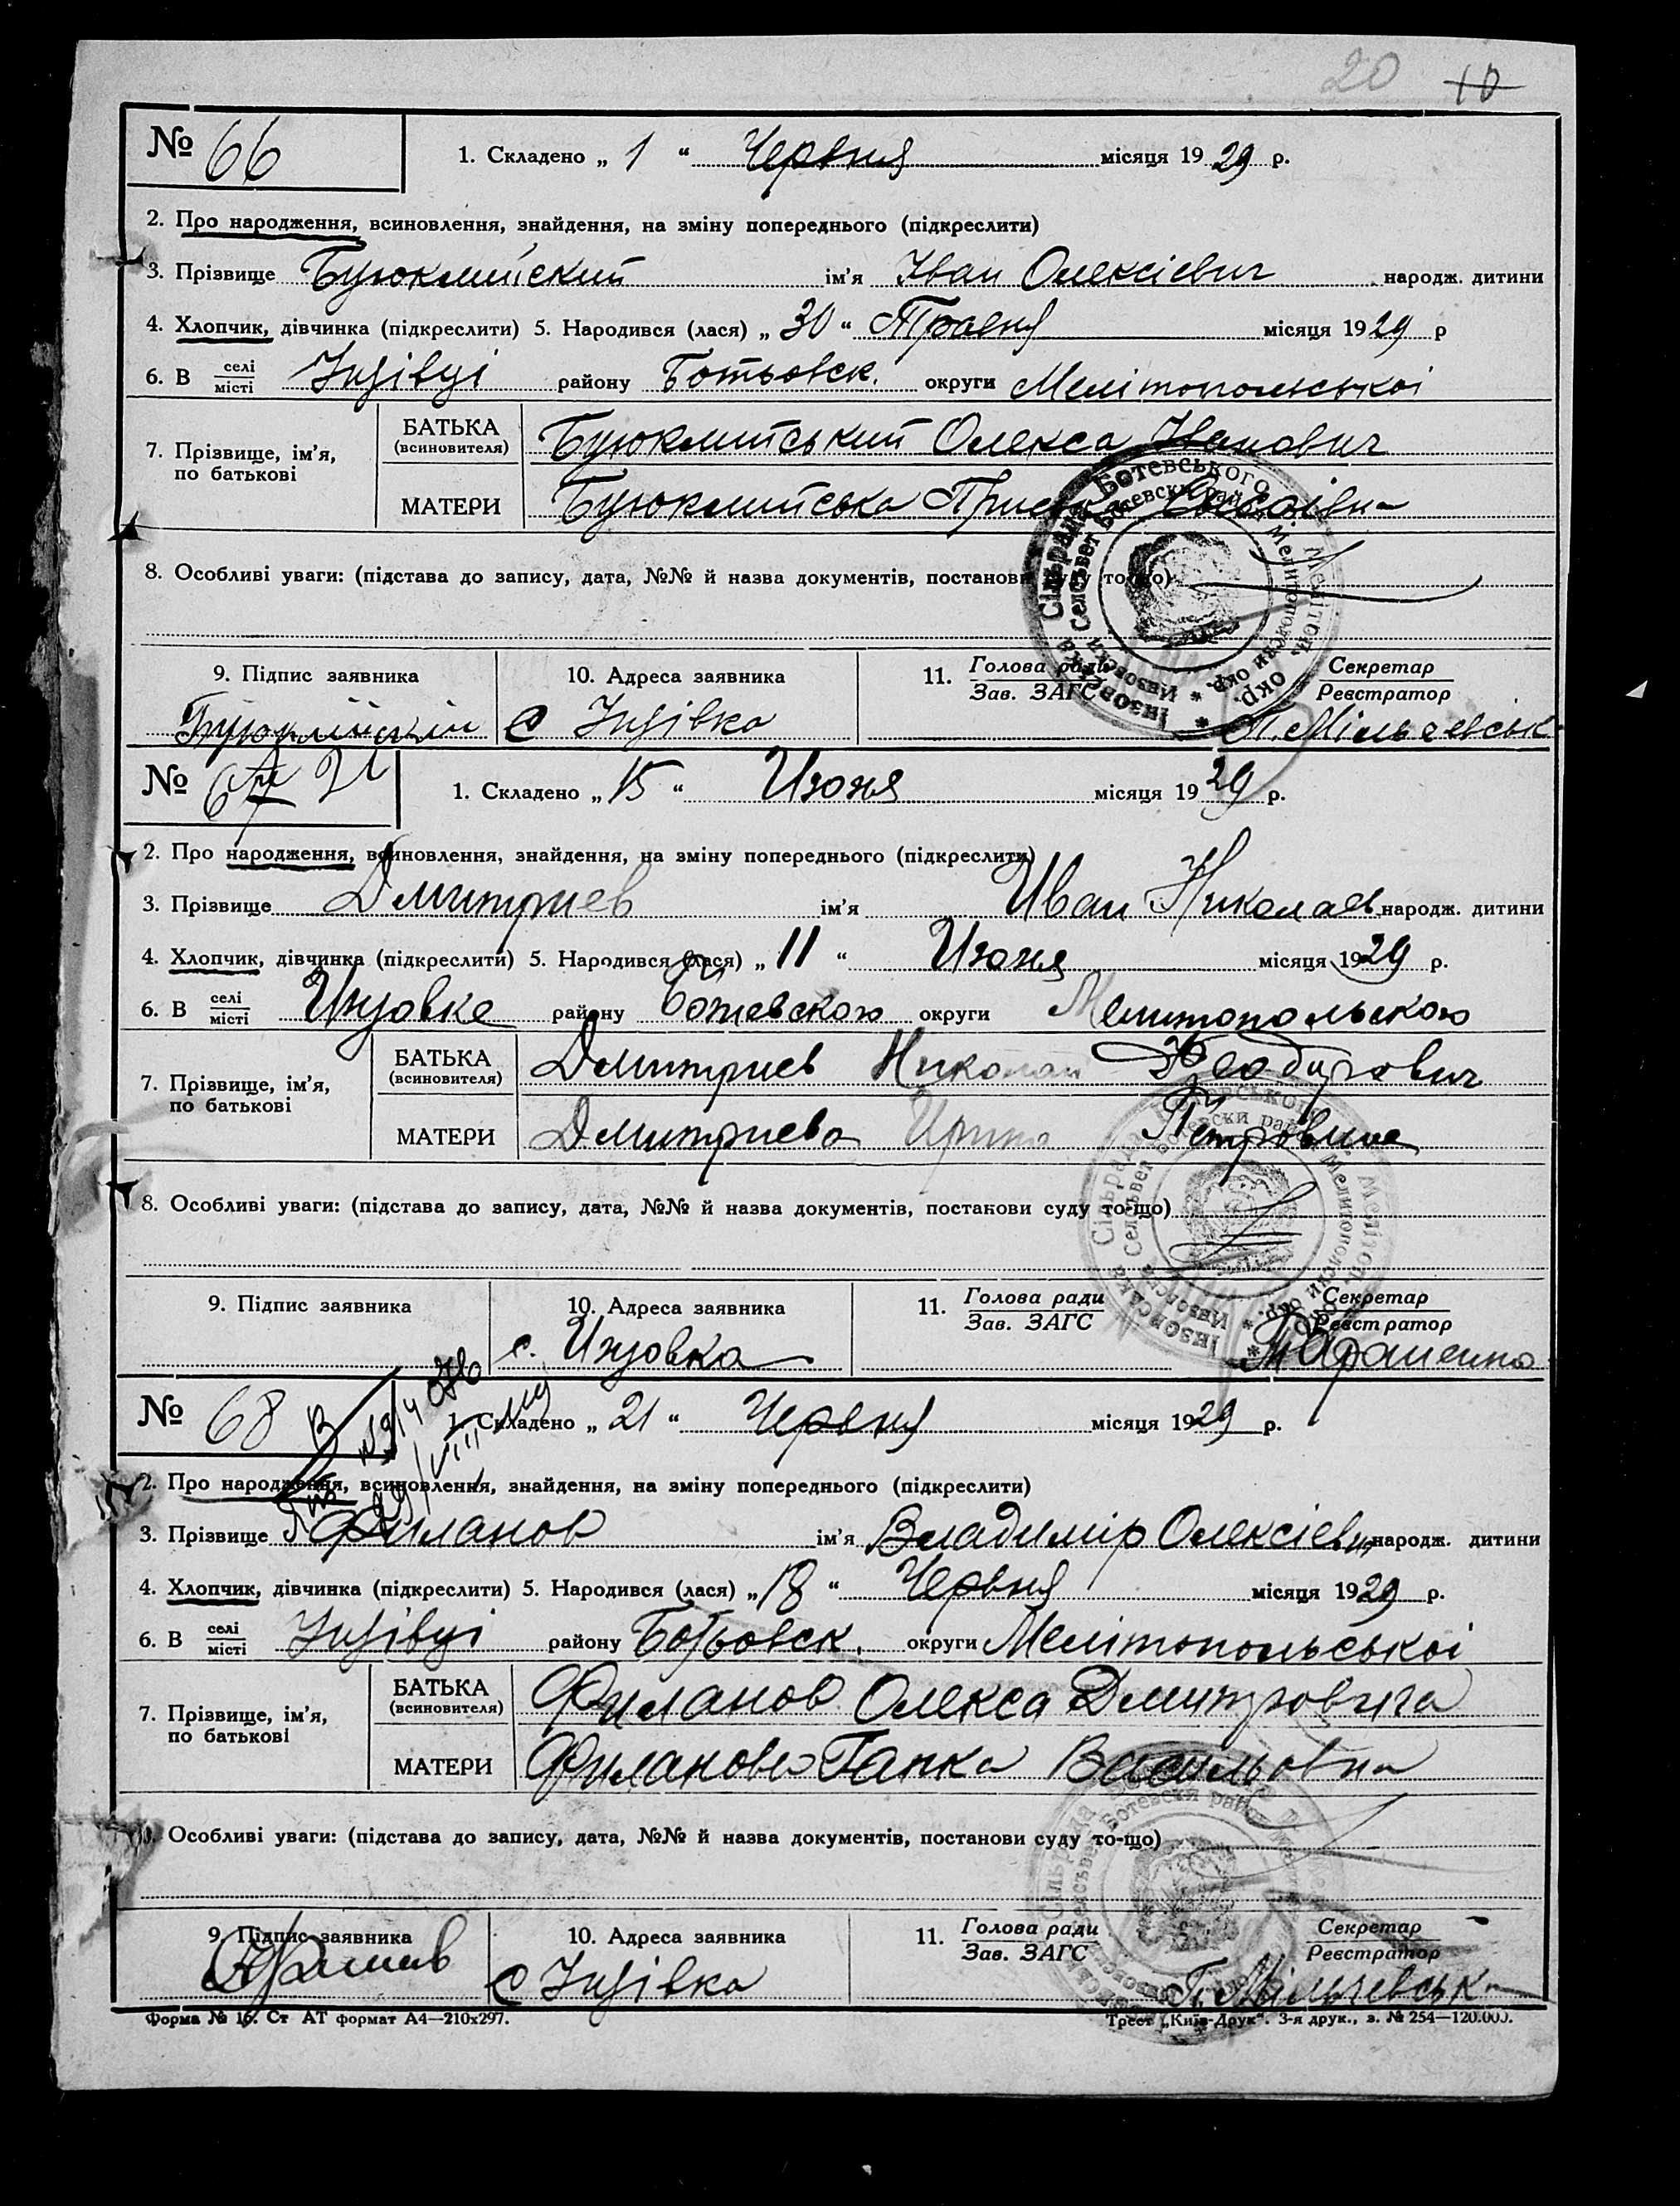 20 10
№ 66 1. Складено „ 1 “ Червня місяця 1929 р.
2. Про народження, всиновлення, знайдення, на зміну попереднього (підкреслити)
3. Прізвище Буюклийский ім’я Іван Олексієвич народж. дитини
4. Хлопчик, дівчинка (підкреслити) 5. Народився (лася) „ 30 “ Травня місяця 1929 р
6. В селі/місті Інзівці району Ботьовск. округи Мелітопольської
7. Прізвище, ім’я, по батькові
БАТЬКА (всиновителя) Буюклийський Олекса Іванович
МАТЕРИ Буюклийська
8. Особливі уваги: (підстава до запису, дата, №№ й назва документів, постанови суду то-що)
9. Підпис заявника 10. Адреса заявника 11. Голова ради/Зав. ЗАГС Секретар/Реєстратор
с Інзівка
№ 67 1. Складено „ 15 “ Июня місяця 1929 р.
2. Про народження, всиновлення, знайдення, на зміну попереднього (підкреслити)
3. Прізвище Дмитриев ім’я Иван Николаев народж. дитини
4. Хлопчик, дівчинка (підкреслити) 5. Народився (лася) „ 11 “ Июня місяця 1929 р.
6. В селі/місті Инзовке району Ботевского округи Мелитопольского
7. Прізвище, ім’я, по батькові
БАТЬКА (всиновителя) Дмитриев Николай Феодорович
МАТЕРИ Дмитриева Ирина Петровна
8. Особливі уваги: (підстава до запису, дата, №№ й назва документів, постанови суду то-що)
9. Підпис заявника 10. Адреса заявника 11. Голова ради/Зав. ЗАГС Секретар/Реєстратор
с. Инзовка
№ 68 1. Складено „ 21 “ Червня місяця 1929 р.
2. Про народження, всиновлення, знайдення, на зміну попереднього (підкреслити)
3. Прізвище Филанов ім’я Владимір Олексієвич народж. дитини
4. Хлопчик, дівчинка (підкреслити) 5. Народився (лася) „ 18 “ Червня місяця 1929 р.
6. В селі/місті Інзівці району Ботьовск. округи Мелітопольської
7. Прізвище, ім’я, по батькові
БАТЬКА (всиновителя) Филанов Олекса Дмитровича
МАТЕРИ Филанова Ганка Васильовна
Особливі уваги: (підстава до запису, дата, №№ й назва документів, постанови суду то-що)
9. Підпис заявника 10. Адреса заявника 11. Голова ради/Зав. ЗАГС Секретар/Реєстратор
с Інзівка
Форма № 16. Ст АТ формат А4—210x297. Трест „Київ-Друк“. 3-я друк., з. № 254—120.000.